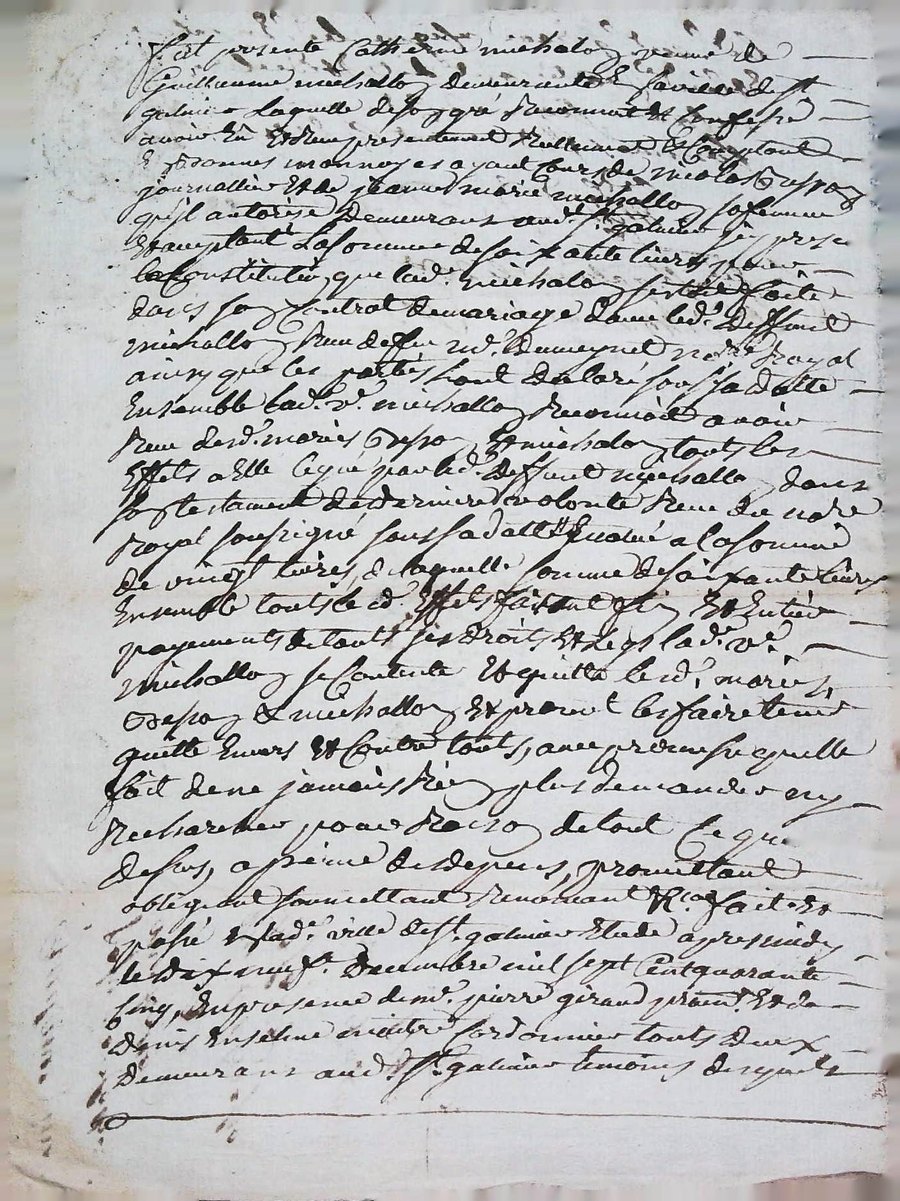 fut presente Catherine michalon veuve de
Guillaume michallon demeurante En laville de st
galmier Laquelle de son gré Reconnoit et confesse
avoir Eu et Receu presentement Reellement et Comptant
En bonnes monnoyes ayant Cours de nicolas Crespon
journallier et de jeanne marie michallon sa femme
qu'il autorise Demeurans aud. st. galmier icy pres.
et acceptant La somme de soixante livres pour
la Constitution que lad. michalon s'est faite
dans son Contrat de mariage d'avec led. deffunt
michallon Receu de feu me. Dumeynet no.re Royal
ainsy que les parties l'ont declaré sous sa datte
Ensemble lad. ve. michallon Reconnoit avoir
Receu desd. mariés Crespon et michalon touts les
Effets a Elle legué par led. deffunt michallon dans
son testament de derniere volonté Receu du no.re
Royal soussigné sous sa datte Evalué a la somme
de vingt livres, de laquelle somme de soixante livres
Ensemble touts lesd. Effets faisant fin et Entier
payement de touts ses droits et Legs lad. ve.
michallon se Contente et quitte lesd. mariés,
Crespon et michallon et promet les faire tenir
quitte Envers et Contre touts, avec promesse quelle
fait de ne jamais Rien plus demander ny
Rechercher pour Raison de tout Ce que
dessus, a peine de depens, promettant
obligeant soumettant Renonçant &ca. fait et
passé En lad. ville de st. galmier Etude apres midy
le dix neufe. Decembre mil sept Cent quarante
Cinq, En presence de me. pierre giraud prat. et de
denis Enselme maitre Cordonnier touts deux
demeurans aud. st. galmier temoins desquels